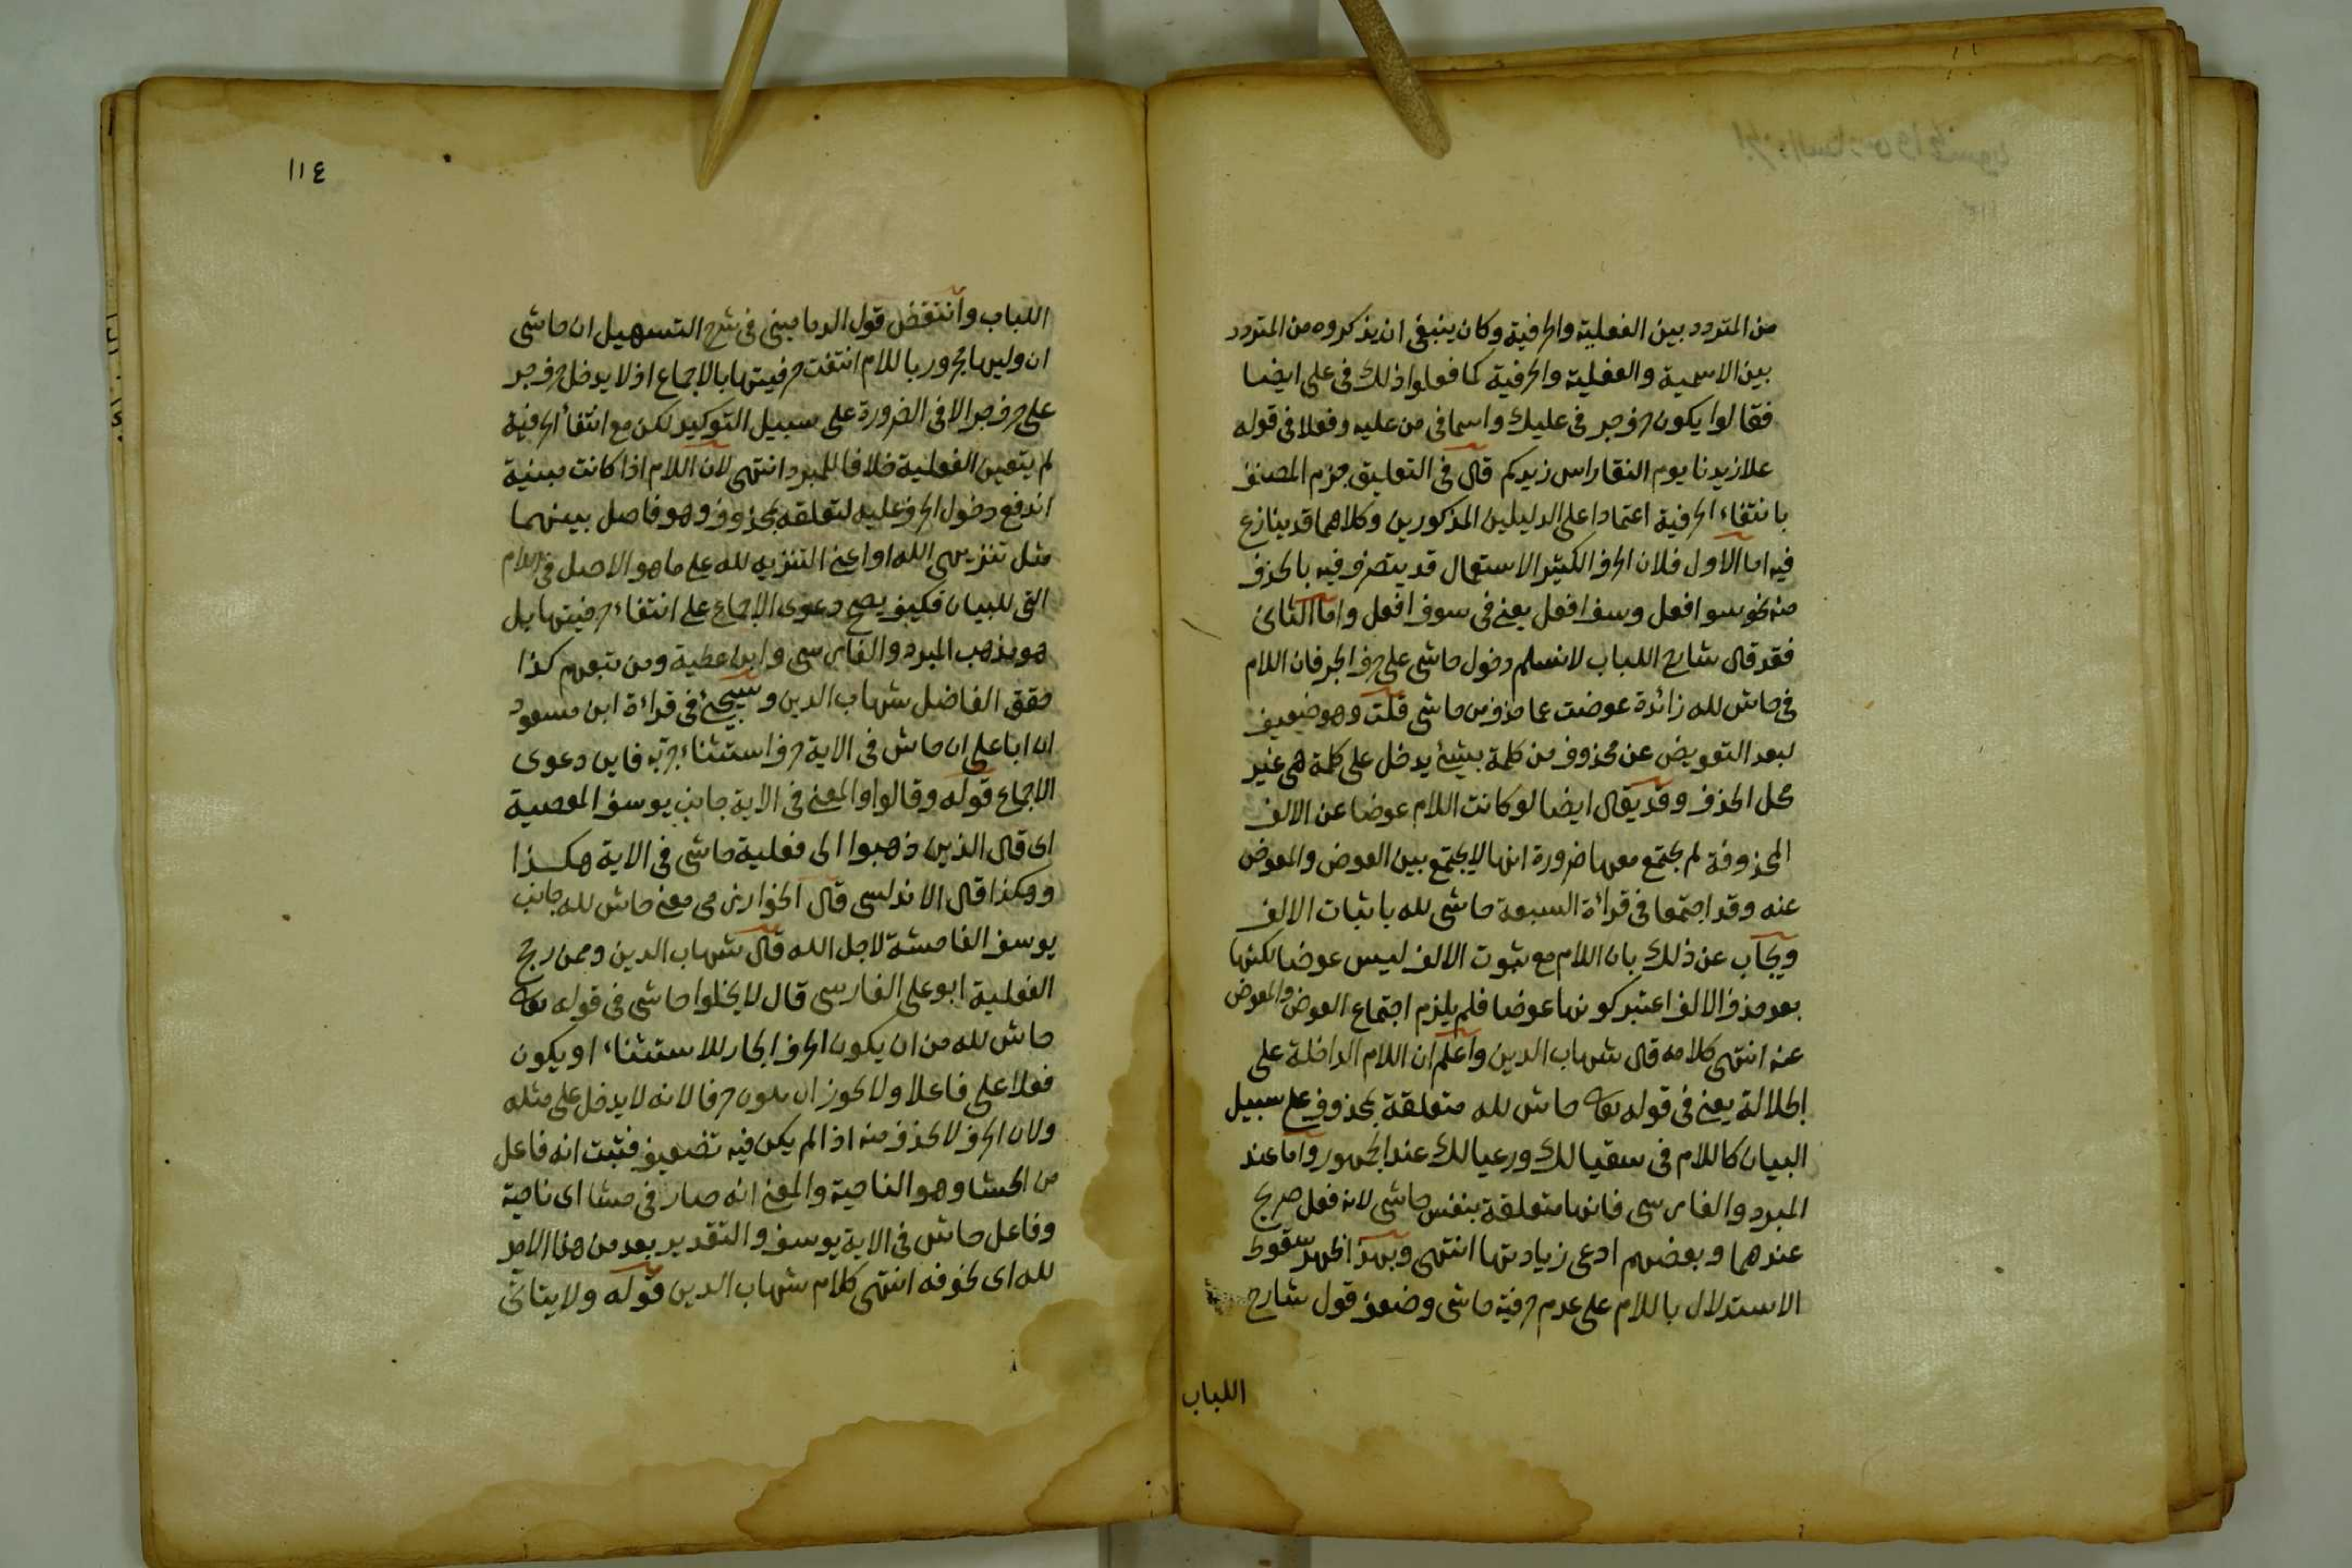 من المتردد بين الفعلية والحرفية وكان ينبغي ان يذكروه من المتردد
بين الاسمية والفعلية والحرفية كما فعلوا ذلك في على ايضا
فقالوا يكون حرف جر في عليك واسما في من عليه وفعلا في قوله
علا زيدنا يوم النقا راس زيدكم قال في التعليق جزم المصنف
بانتفاء الحرفية اعتمادا على الدليلين المذكورين وكلاهما قد ينازع
فيه اما الاول فلان الحرف الكثير الاستعمال قد يتصرف فيه بالحذف
منه نحو سو افعل وسف افعل يعني في سوف افعل واما الثاني
فقد قال شارح اللباب لا نسلم دخول حاشى على حرف الجر فان اللام
في حاش لله زائدة عوضت عما حذف من حاشى قلت وهو ضعيف
لبعد التعويض عن محذوف من كلمة بشيء يدخل على كلمة هي غير
محل الحذف وقد يقال ايضا لو كانت اللام عوضا عن الالف
المحذوفة لم يجتمع معها ضرورة انها لا يجتمع بين العوض والمعوض
عنه وقد اجتمعا في قراءة السبعة حاشى لله باثبات الالف
ويجاب عن ذلك بان اللام مع ثبوت الالف ليس عوضا لكنها
بعد حذف الالف اعتبر كونها عوضا فلم يلزم اجتماع العوض والمعوض
عنه انتهى كلامه قال شهاب الدين واعلم ان اللام الداخلة على
الجلالة يعني في قوله تعالى حاش لله متعلقة بمحذوف على سبيل
البيان كاللام في سقيا لك ورعيا لك عند الجمهور واما عند
المبرد والفارسي فانها متعلقة بنفس حاشى لانه فعل صريح
عندهما وبعضهم ادعى زيادتها انتهى وبهذا ظهر سقوط
الاستدلال باللام على عدم حرفية حاشى وضعف قول شارح
اللباب
١١٤
اللباب وانتقض قول الدماميني في شرح التسهيل ان حاشى
ان وليها مجرور باللام انتفت حرفيتها بالاجماع اذ لا يدخل حرف جر
على حرف جر الا في الضرورة على سبيل التوكيد لكن مع انتفاء الحرفية
لم يتعين الفعلية خلافا للمبرد انتهى لان اللام اذا كانت مبنية
اندفع دخول الحرف عليه لتعلقه بمحذوف وهو فاصل بينهما
مثل تنزيهى الله او اعني التنزيه لله على ما هو الاصل في اللام
التي للبيان فكيف يصح دعوى الاجماع على انتفاء حرفيتها بل
هو مذهب المبرد والفارسي وابن عطية ومن تبعهم كذا
حقق الفاضل شهاب الدين وسيجيء في قراءة ابن مسعود
ان ابا على ان حاش في الاية حرف استثناء جر به فاين دعوى
الاجماع قوله وقالوا والمعنى في الاية جانب يوسف المعصية
اى قال الذين ذهبوا الى فعلية حاشى في الاية هكذا
وهكذا قال الاندلسي قال الخوارزمي معنى حاش لله جانب
يوسف الفاحشة لاجل الله قال شهاب الدين وممن رجح
الفعلية ابو على الفارسي قال لا يخلوا حاشى في قوله تعالى
حاش لله من ان يكون الحرف الجار للاستثناء او يكون
فعلا على فاعلا ولا يجوز ان يكون حرفا لانه لا يدخل على مثله
ولان الحرف لا يحذف منه اذا لم يكن فيه تضعيف فثبت انه فاعل
من الحشا وهو الناحية والمعنى انه صار في حشا اى ناحية
وفاعل حاش في الاية يوسف والتقدير بعد من هذا الامر
لله اى لخوفه انتهى كلام شهاب الدين قوله ولا يتاتى